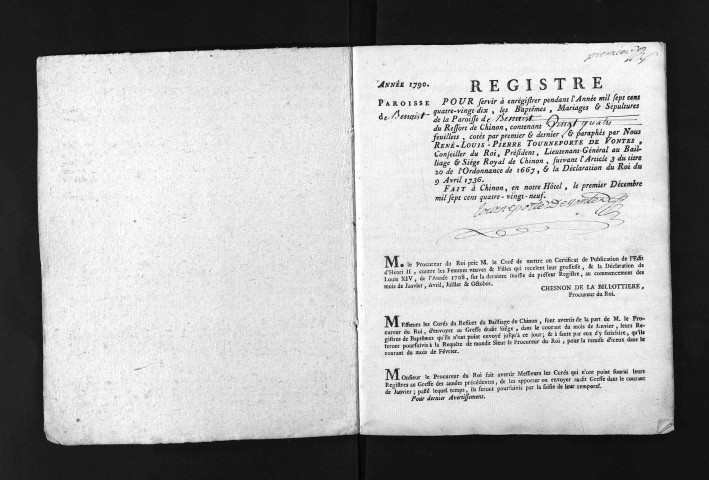 ANNÉE 1790.
REGISTRE
PAROISSE
de Benaist
POUR servir à enrégistrer pendant l'Année mil sept cens
quatre-vingt dix, les Baptêmes, Mariages & Sépultures
de la Paroisse de Benaist
du Ressort de Chinon, contenant Vingt quatre
feuillets, cotés par premier & dernier, & paraphés par Nous
RENÉ-LOUIS-PIERRE TOURNEPORTE DE VONTES,
Conseiller du Roi, Président, Lieutenant-Général au Bail-
liage & Siége Royal de Chinon, suivant l'Article 3 du titre
20 de l'Ordonnance de 1667, & la Déclaration du Roi du
9 Avril 1736.
FAIT à Chinon, en notre Hôtel, le premier Décembre
mil sept cens quatre-vingt-neuf.
Tourneporte De Vontes
M. le Procureur du Roi prie M. le Curé de mettre un Certificat de Publication de l'Edit
d'Henri II, contre les Femmes veuves & Filles qui recelent leur grossesse, & la Déclaration de
Louis XIV, de l'Année 1708, sur la derniere feuille du présent Registre, au commencement des
mois de Janvier, Avril, Juillet & Octobre.
CHESNON DE LA BILLOTTIERE,
Procureur du Roi.
MEssieurs les Curés du Ressort du Bailliage de Chinon, sont avertis de la part de M. le Pro-
cureur du Roi, d'envoyer au Greffe dudit Siége, dans le courant du mois de Janvier, leurs Re-
gistres de Baptêmes qu'ils n'ont point envoyé jusqu'à ce jour; & à faute par eux d'y satisfaire, qu'ils
seront poursuivis à la Requête de mondit Sieur le Procureur du Roi, pour la remise d'iceux dans le
courant du mois de Février.
MOnsieur le Procureur du Roi fait avertir Messieurs les Curés qui n'ont point fourni leurs
Registres au Greffe des années précédentes, de les apporter ou envoyer audit Greffe dans le courant
de Janvier; passé lequel temps, ils seront poursuivis par la saisie de leur temporel.
Pour dernier Avertissement.